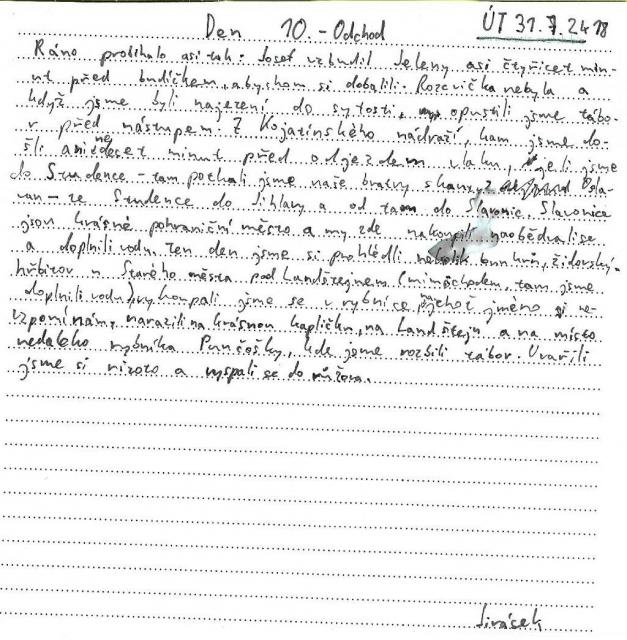 Den 10. - Odchod ÚT 31.7.2018
Ráno probíhalo asi tak: Josef vzbudil Jeleny asi čtyřicet min-
ut před budíčkem, abychom si dobalili. Rozcvička nebyla a
když jsme byli najezení do sytosti, opustili jsme tábo-
r před nástupem. Z Kojatínského nádraží, kam jsme do-
šli ani ne deset minut před odjezdem vlaku, jeli jsme
do Studence - tam potkali jsme naše bratry skauty z Osla-
van - ze Studence do Jihlavy a od tam do Slavonic. Slavonice
jsou krásné pohraniční město a my zde nakoupili naobědvali se
a doplnili vodu. Ten den jsme si prohlédli několik bunkrů, židovský
hřbitov u Starého města pod Landštejnem (mimochodem, tam jsme
doplnili vodu), vykoupali jsme se v rybníce jehož jméno si ne-
vzpomínám, narazili na krásnou kapličku, na Landštejn a na místo
nedaleko rybníka Punčošky, kde jsme rozbili tábor. Uvařili
jsme si rizoto a vyspali se do růžova.
Jirásek